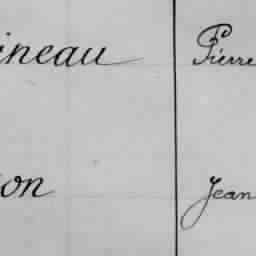 ineau Pierre
on Jean